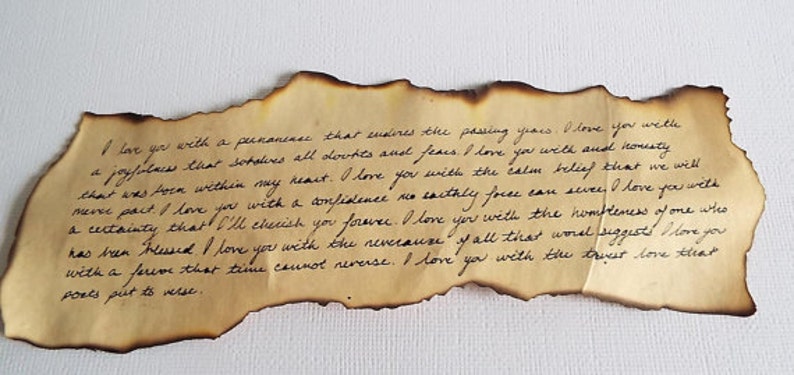 I love you with a permanence that endures the passing years. I love you with
a joyfulness that subdues all doubts and fears. I love you with and honesty
that was born within my heart. I love you with the calm belief that we will
never part. I love you with a confidence no earthly force can sever. I love you with
a certainty that I'll cherish you forever. I love you with the humbleness of one who
has been blessed. I love you with the reverance of all that word suggests. I love you
with a fervor that time cannot reverse. I love you with the truest love that
poets put to verse.